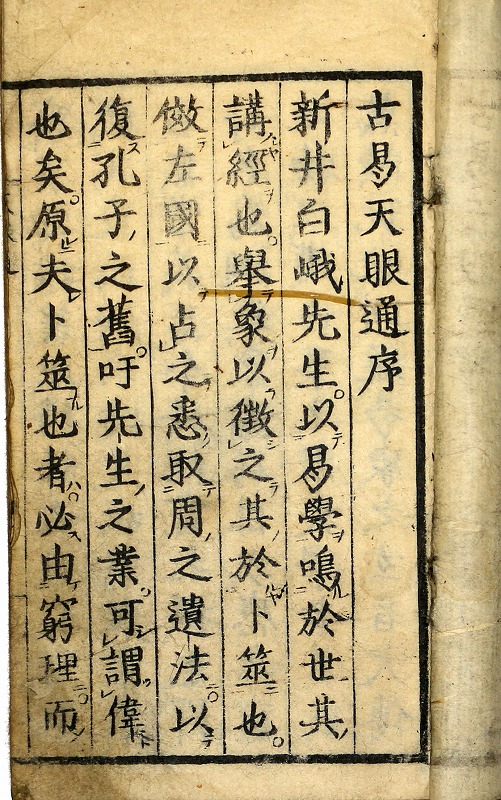 古易天眼通序
新井白峨先生。以易學鳴於世其
講經也。舉象以徵之其於卜筮也。
倣左國以占之悉取周之遺法。以
復孔子之舊。吁先生之業。可謂偉
也矣。原夫卜筮也者。必由窮理而